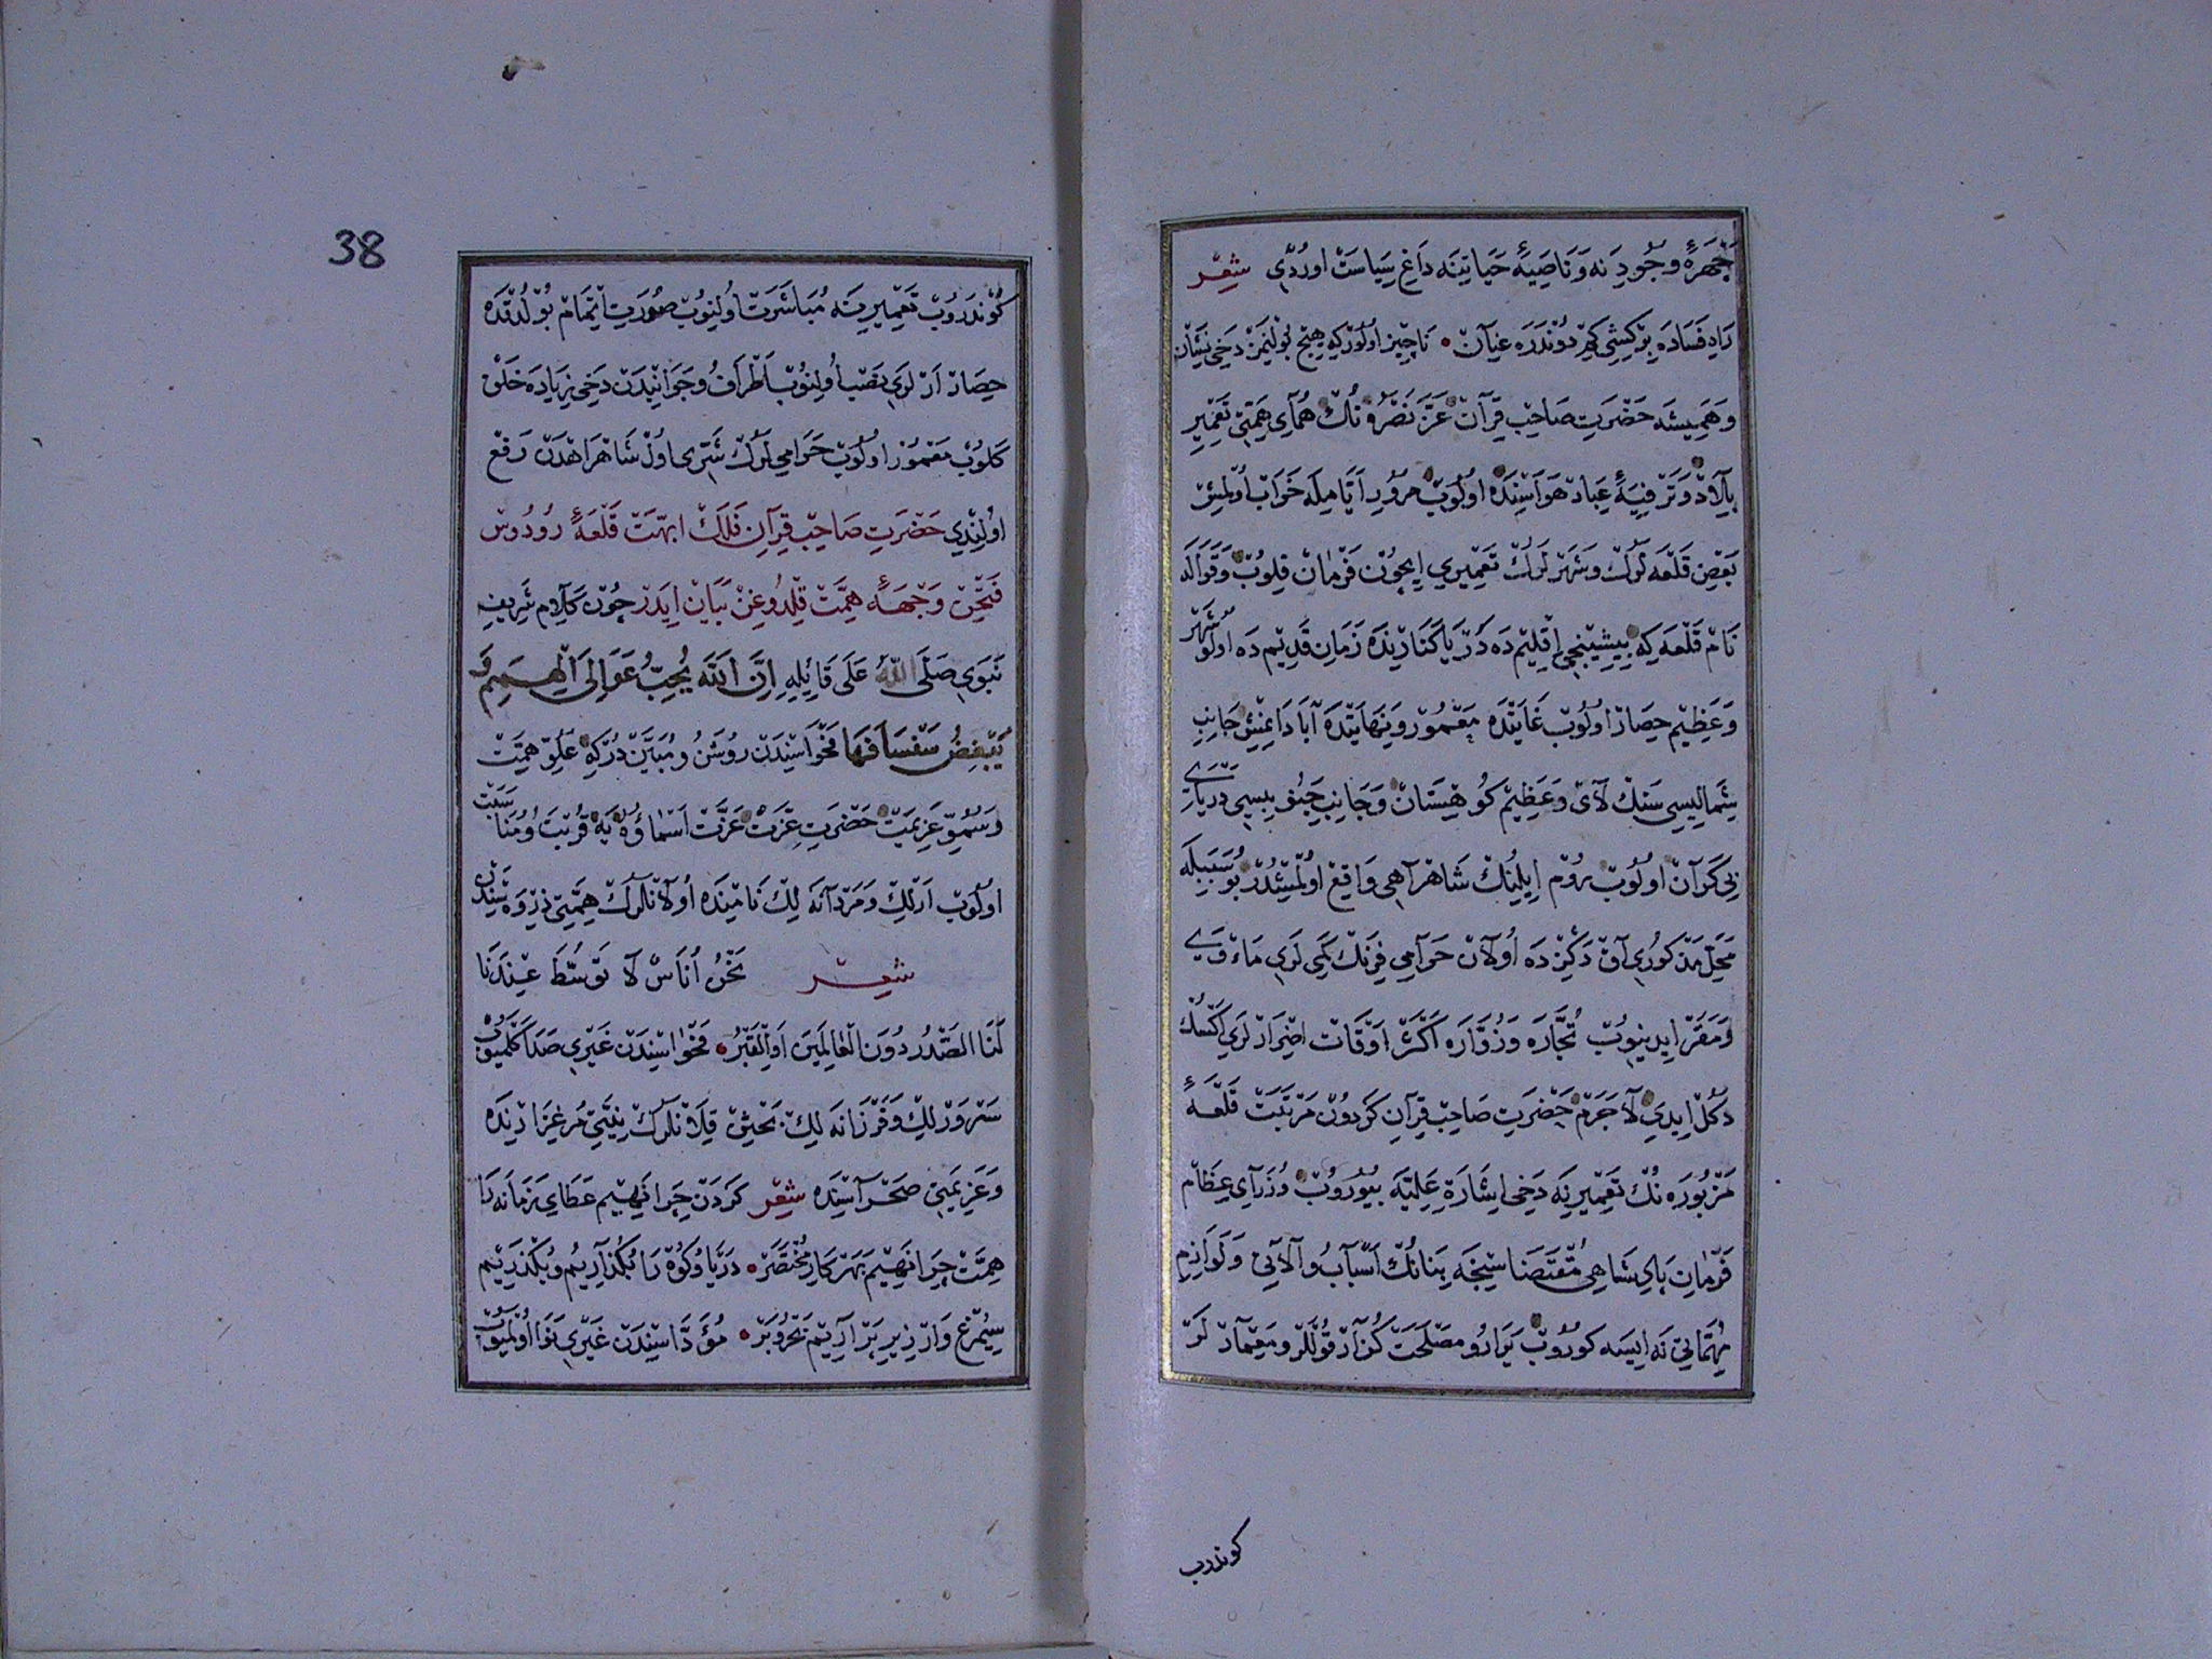 چهرهٔ وجودنه وناصیهٔ حیاتینه داغ سیاست اوردی شعر
راه فساده برکشی کیم دوندره عنان ناچیز اولورکه هیچ بولنمز دخی نشان
وهمیشه حضرت صاحب قرآن عزّ نصره نك همای همتی تعمیر
بلاد وترفیهٔ عباد هواسنده اولوب مرور ایامیله خراب اولمش
بعض قلعه لرك وشهرلرك تعمیری ایچون فرمان قلوب وقواله
نام قلعه که بیشینجی اقلیم ده دریا کنارنده زمان قدیم ده اولو شهر
وعظیم حصار اولوب غایتده معمور ونهایتده آبادا نمیش جانب
شمالیسی سنك لاخ وعظیم کوهستان وجانب جنوبیسی دریای
بی کران اولوب روم ایلینك شاهراهی واقع اولمشدر بو سببله
محل مذکوری آق دکیزده اولان حرامی فرنك کمی لری مأوی
ومقر ایدینوب تجّاره وزوّاره اکثر اوقات اضرارلری اکسك
دکل ایدی لاجرم حضرت صاحب قرآن کردون مرتبت قلعهٔ
مزبوره نك تعمیرنه دخی اشارة علیّه بیوروب وزرای عظام
فرمان پادشاهی مقتضاسیجه بنانك اسباب وآلاتی ولوازم
مهمّاتی نه ایسه کوروب یرارو مصلحت کذار قوللر ومعمارلر
کوندرب
38
کوندروب تعمیرینه مباشرت اولنوب صورت اتمام بولدقده
حصار ارلری نصب اولنوب اطراف وجوانبدن دخی زیاده خلق
کلوب معمور اولوب حرامی لرك شرّی اول شاهراهدن رفع
اولندی حضرت صاحب قرآن فلك ابهت قلعهٔ رودوس
فتحن وجههٔ همّت قلدوغن بیان ایدر چون کلام شریف
نبوی صلی الله علی قائله انّ الله یحبّ عوالی الهمم و
یبغض سفسافها فحواسندن روشن ومبیّن درکه علوّ همّت
وسموّ عزیمت حضرت عزت عزّت اسماؤه یه قربت ومناسبت
اولوب ارلك ومردانه لك نامنده اولانلرك همّتی ذروه سندن
شعر نحن اناس لا توسّط عندنا
لنا الصّدر دون العالمین او القبر فحواسندن غیری صدا کلمیوب
سرورلك وفرزانه لك بحثین قلانلرك نیّتی مرغزارنده
وعزیمتی صحراسنده شعر کردن چرا نهیم عطای زمانه را
همّت چرا نهیم بهر کار مختصر دریا وکوه را بکذاریم وبکذریم
سیمرغ وار زیر پر آریم بحر وبر مؤدّاسندن غیری نوا اولمیوب